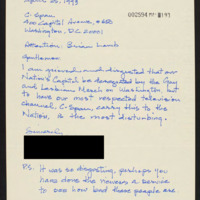 April 26, 1993
002594 MY 193
C-Span
400 Capitol Avenue, #650
Washington, D.C. 20001
Attention: Brian Lamb
Gentlemen:
I am grieved and disgusted that our
Nation's Capitol be denegrated by the Gay
and Lesbian March on Washington, but
to have our most respected television
channel, C-Span, carry this to the
Nation, is the most disturbing.
Sincerely,
P.S. It was so disgusting, perhaps you
have done the viewers a service
to see how bad these people are